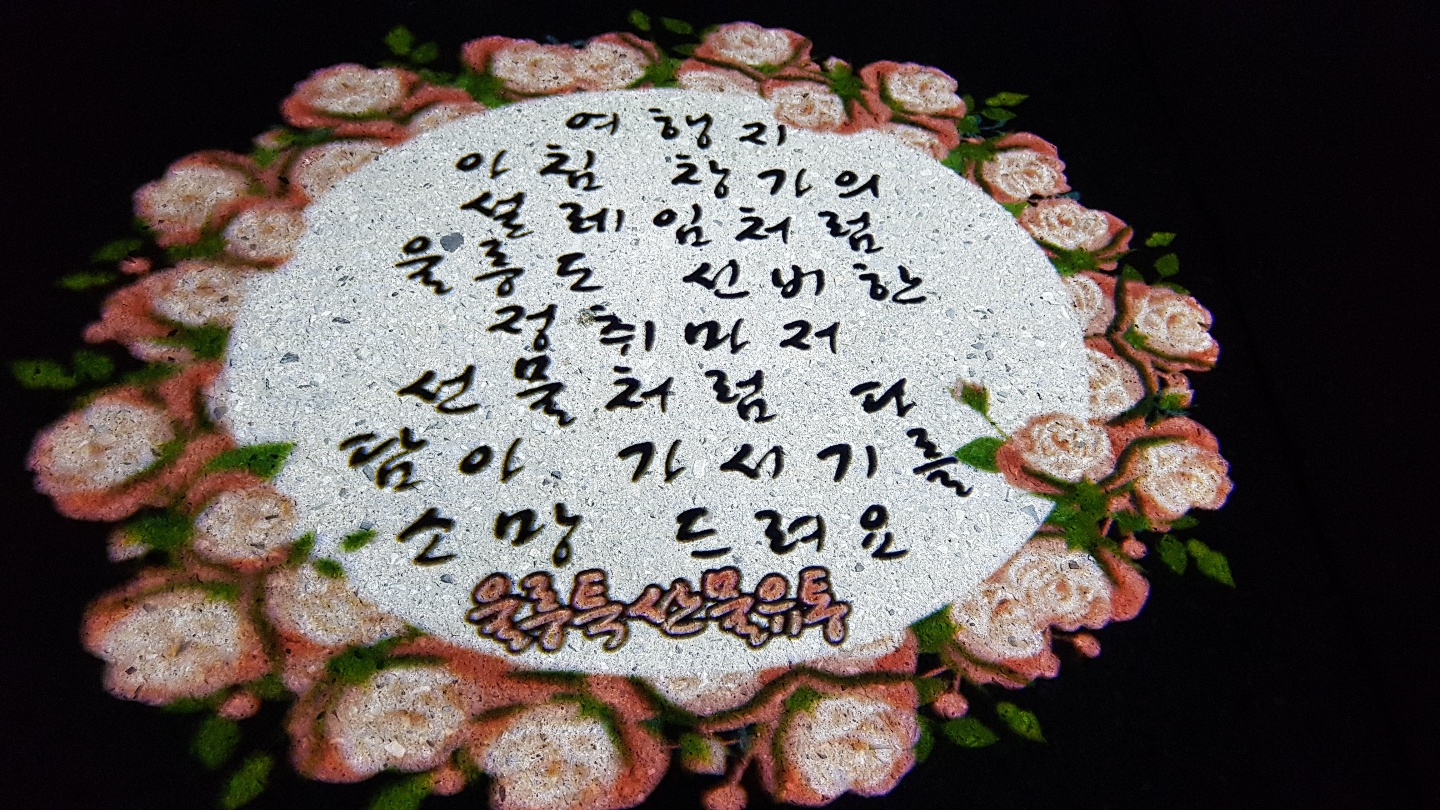 여행지
아침 창가의
설레임처럼
울릉도 선버한
정취마저
선물처럼 다
담아 가서기를
소망 드려요
울릉특산물유투